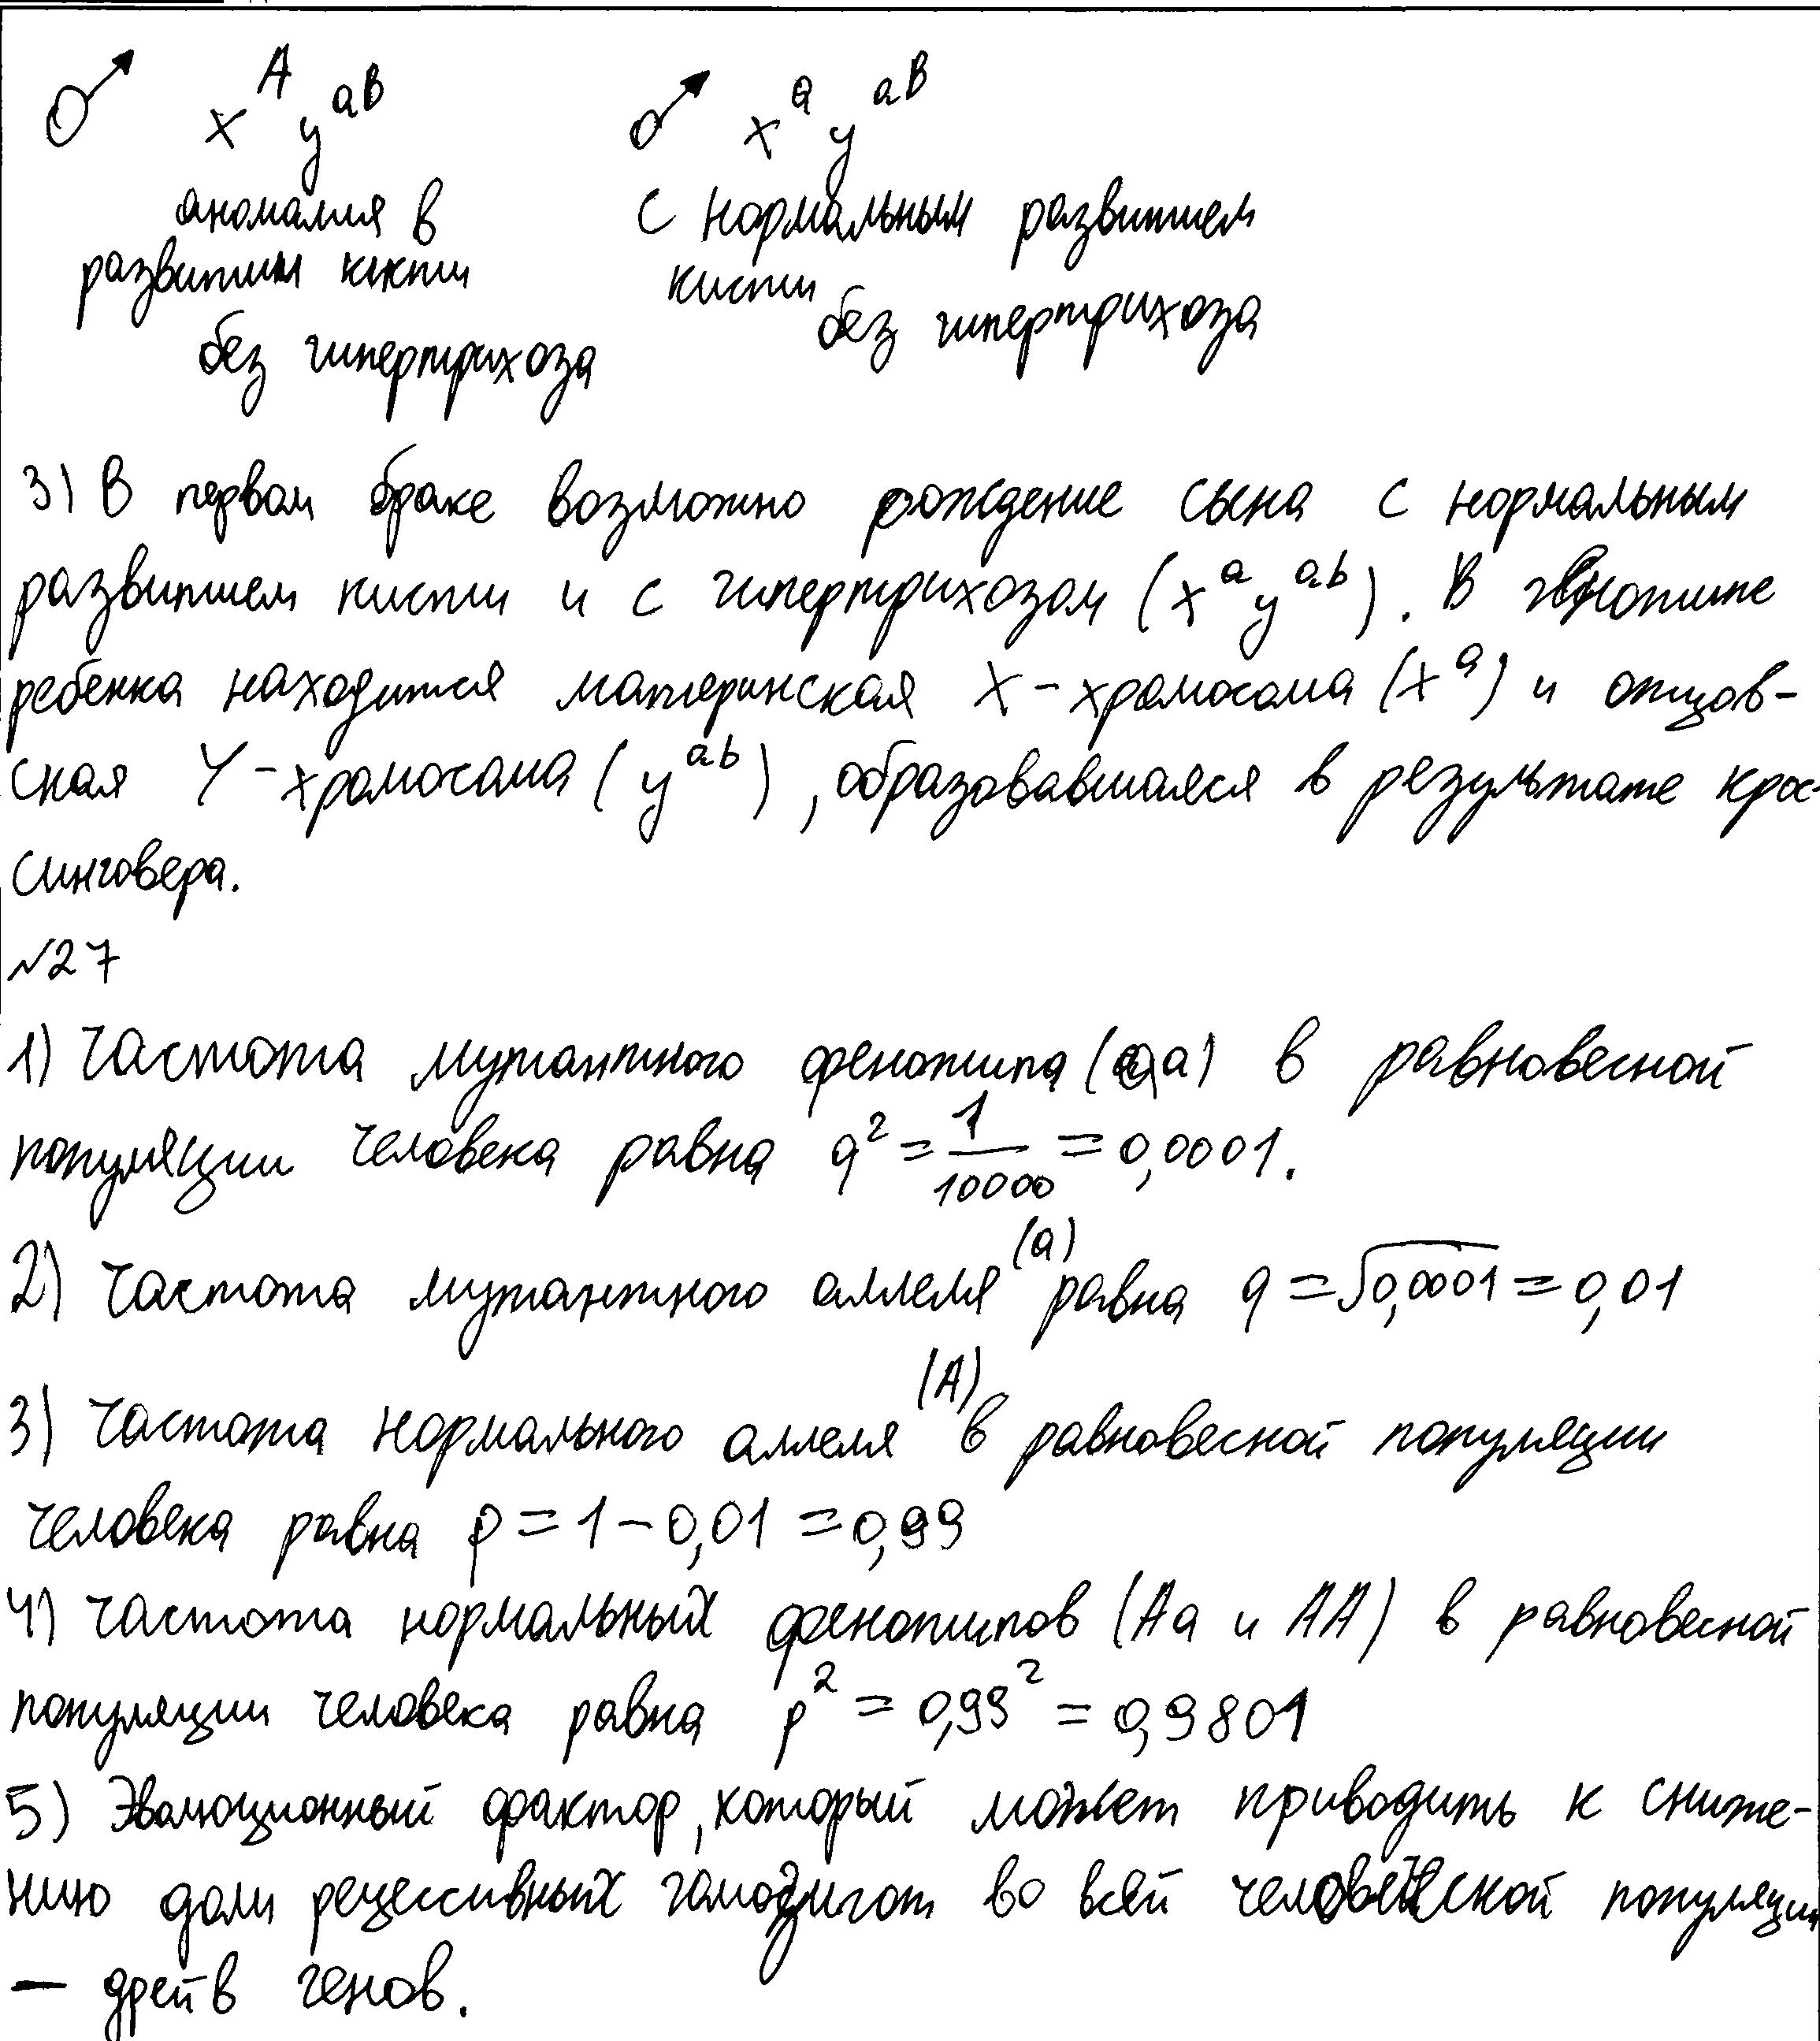 ♂ x^A y^aB ♂ x^a y^aB
аномалия в с нормальным развитием
развитии кисти кисти
без гипертрихоза без гипертрихоза
3) В первом браке возможно рождение сына с нормальным
развитием кисти и с гипертрихозом (x^a y^ab). В генотипе
ребенка находится материнская X-хромосома (x^a) и отцов-
ская Y-хромосома (y^ab), образовавшаяся в результате крос-
синговера.
№27
1) Частота мутантного фенотипа (аа) в равновесной
популяции человека равна q² = 1/10000 = 0,0001.
2) Частота мутантного аллеля (а) равна q = √0,0001 = 0,01
3) Частота нормального аллеля (А) в равновесной популяции
человека равна p = 1 - 0,01 = 0,99
4) Частота нормальных фенотипов (Аа и АА) в равновесной
популяции человека равна p² = 0,99² = 0,9801
5) Эволюционный фактор, который может приводить к сниже-
нию доли рецессивных гомозигот во всей человеческой популяции
— дрейв генов.